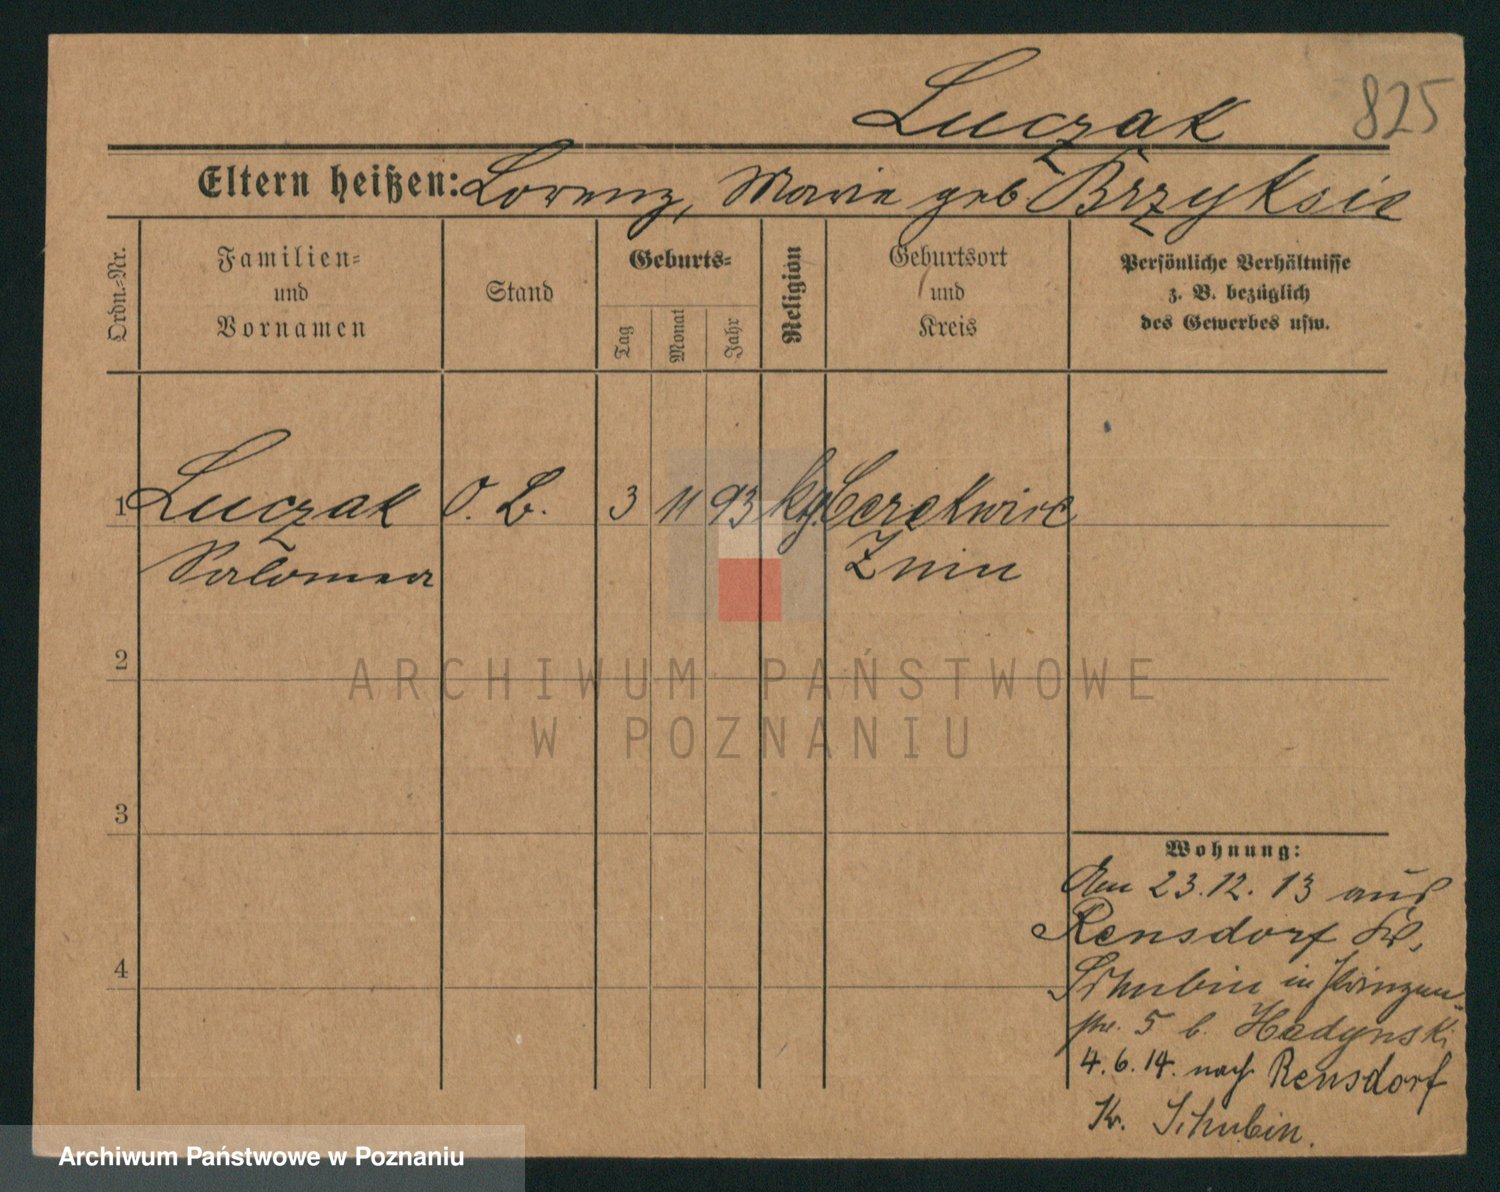 Luczak 825
Eltern heißen: Lorenz, Marie geb Brzyksic
Ordn.-Nr.
Familien-
und
Vornamen
Stand
Geburts-
Tag
Monat
Jahr
Religion
Geburtsort
und
Kreis
Persönliche Verhältnisse
z. B. bezüglich
des Gewerbes usw.
1 Luczak O. L. 3 11 93 Cerekwice
Salomea Znin
2
3
4
Wohnung:
Am 23.12.13 aus
Rensdorf
Schubin in Prinzen-
str. 5 b. Hadynski
4.6.14. nach Rensdorf
Kr. Schubin.
ARCHIWUM PAŃSTWOWE
W POZNANIU
Archiwum Państwowe w Poznaniu